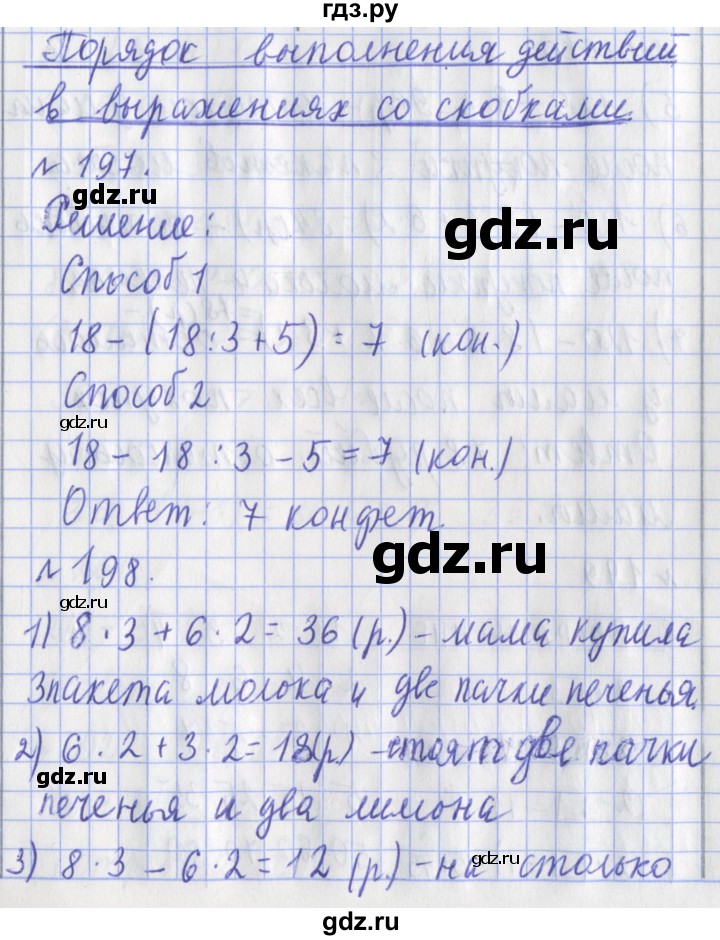 гдз.ру
Порядок выполнения действий
в выражениях со скобками
№197.
gdz.ru
Решение:
gdz.ru
Способ 1
18-(18:3+5)=7 (кон.)
Способ 2
gdz.ru
18-18:3-5=7 (кон.)
Ответ: 7 конфет
gdz.ru
№198.
gdz.ru
1) 8·3+6·2=36 (р.) - мама купила
3 пакета молока и две пачки печенья.
2) 6·2+3·2=18(р) - стоят две пачки
gdz.ru
печенья и два лимона
3) 8·3-6·2=12 (р.) - на столько
gdz.ru
gdz.ru